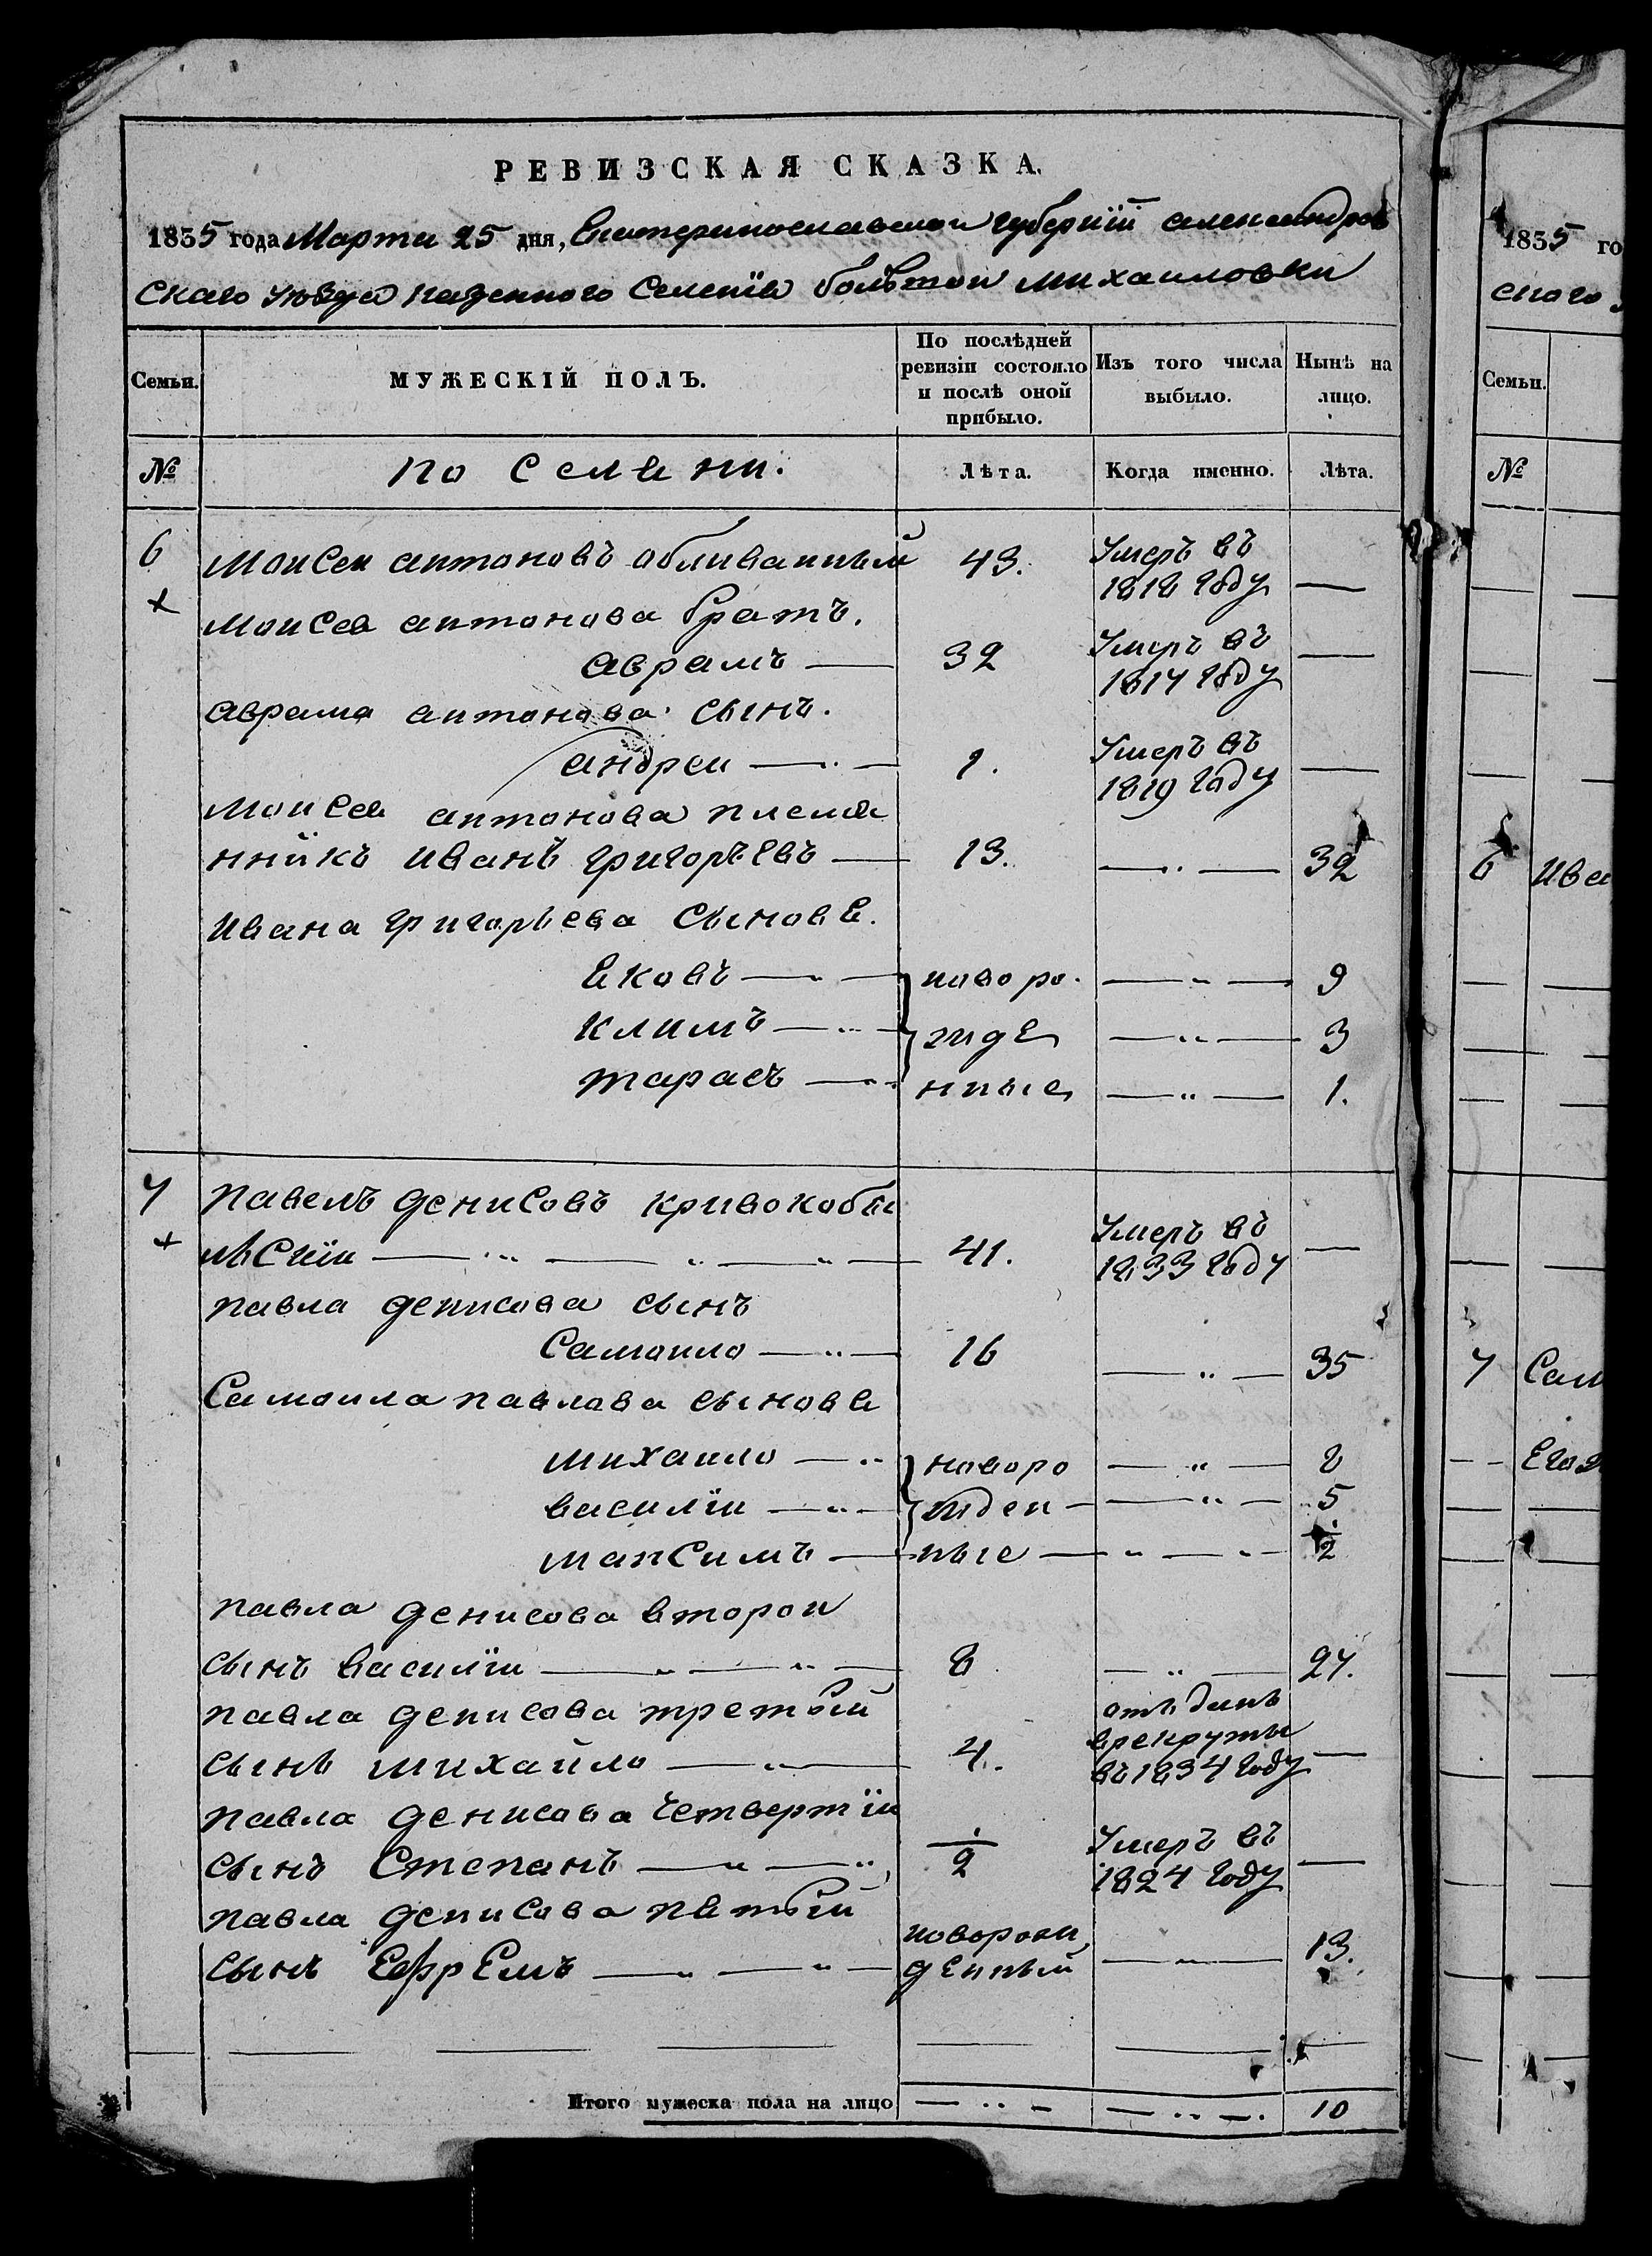 РЕВИЗСКАЯ СКАЗКА.
1835 года Марта 25 дня, Екатеринославской губернїи александров
скаго уѣзда казенного Селенїя большой михаиловки
Семьи. МУЖЕСКІЙ ПОЛЪ. По послѣдней ревизіи состояло и послѣ оной прибыло. Изъ того числа выбыло. Нынѣ на лицо.
№ по Селяни. Лѣта. Когда именно. Лѣта.
6 моисеи антоновъ обливанный 43. Умеръ въ 1818 году —
моисея антонова братъ.
аврамъ — 32 Умеръ въ 1814 году —
аврама антонова сынъ.
андреи — 1. Умеръ въ 1819 году —
моисея антонова племя
нникъ иванъ григорьевъ — 13. — 32
ивана григорьева сыновя.
яковъ — новоро — 9
климъ — жде — 3
тарасъ — нные — 1.
7 павелъ денисовъ кривокобы
льскїи — 41. Умеръ въ 1833 году —
павла денисова сынъ
Самоило — 16 — 35
Самоила павлова сыновя
михаило — новоро — 8
василїи — жден — 5
максимъ — ные — 1/2
павла денисова второи
сынъ василїи — 8 — 27.
павла денисова третьїи
сынъ михайло — 4. отъданъ врекруты въ 1834 году —
павла денисова четвертїи
сынъ Степанъ — 1/2 Умеръ въ 1824 году —
павла денисова пятыи
сынъ Ефремъ — новорож денный — 13.
Итого мужеска пола на лицо — — 10
1835 го
ского
Семьи.
№
6 Ива
7 Сам
Его